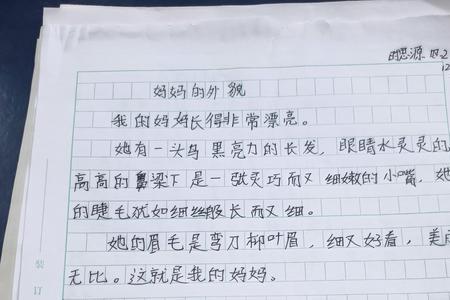 时思源 四.2
12
妈妈的外貌
我的妈妈长得非常漂亮。
她有一头乌黑亮力的长发，眼睛水灵灵的
高高的鼻梁下是一张灵巧而又细嫩的小嘴，她
的睫毛犹如细丝般长而又细。
她的眉毛是弯刀柳叶眉，细又好看，美丽
无比。这就是我的妈妈。
装
订